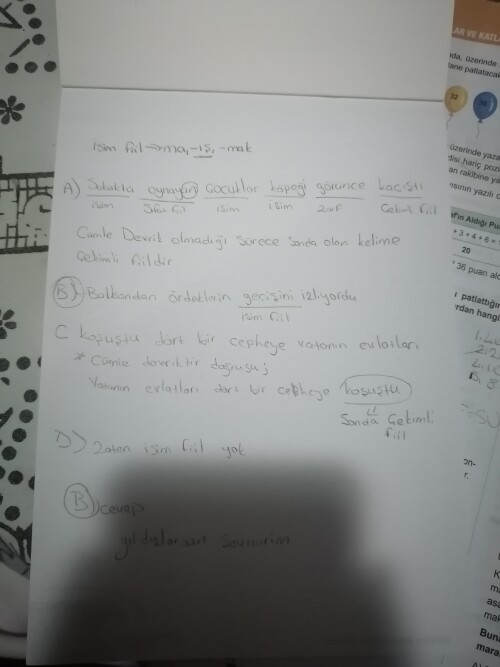 isim fiil → ma, -ış, -mak
A) Sokakta oynayan çocuklar köpeği görünce kaçıştı
isim Sıfat fiil isim isim zarf Çekimli fiil
Cümle Devrik olmadığı sürece sonda olan kelime
Çekimli fiildir
B) Balkondan ördeklerin geçişini izliyordu
isim fiil
C koşuştu dört bir cepheye vatanın evlatları
* Cümle devriktir doğrusu;
Vatanın evlatları dört bir cepheye koşuştu
Sonda Çekimli
fiil
D) Zaten isim fiil yok
B) cevap
yıldızlarsan sevinirim
LAR VE KATLA
32
36
üzerinde yaza
disi hariç pozi
an rakibine ya
asının yazılı o
+ 3 + 4 + 6 =
20
36 puan alo
patlattığın
rdan hangi